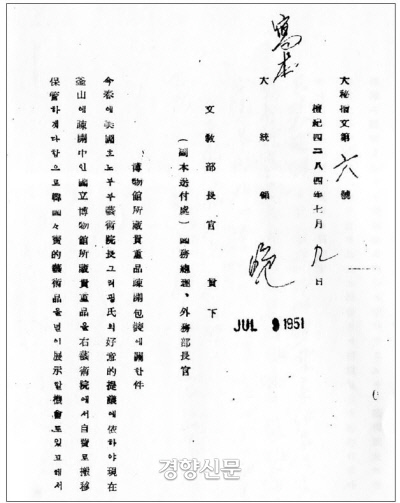 寫本
大秘指文第 六 號
檀紀四二八四年七月 九 日
大統領
JUL 9 1951
文教部長官 貴下
(副本送付處) 國務總理、外務部長官
博物館所藏貴重品疎開包裝에關한件
今春에美國호노루루藝術院長그리핑氏의好意的提議에依하야現在
釜山에疎開中인國立博物館所藏貴重品을右藝術院에서自費로搬移
保管하게다함으로韓國々寶的藝術品을널이展示할機會도잇고해서
경향신문